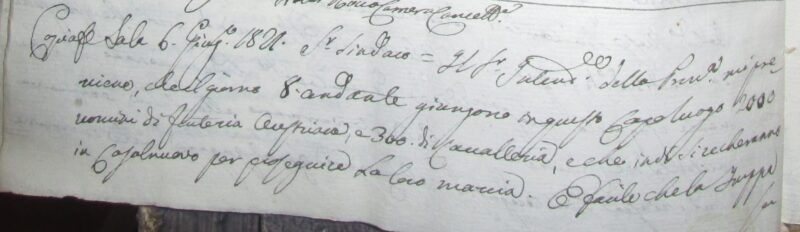 Copia = Sala 6. Giug.º 1821. Sr. Sindaco = Il Sr. Intend.te della Prov.a mi pre
viene, che il giorno 8. andante giungono in questo Capoluogo 2000
uomini di fanteria Austriaca, e 300. di Cavalleria, e che indi si recheranno
in Casalnuovo per proseguire la loro marcia. È facile che la Truppa